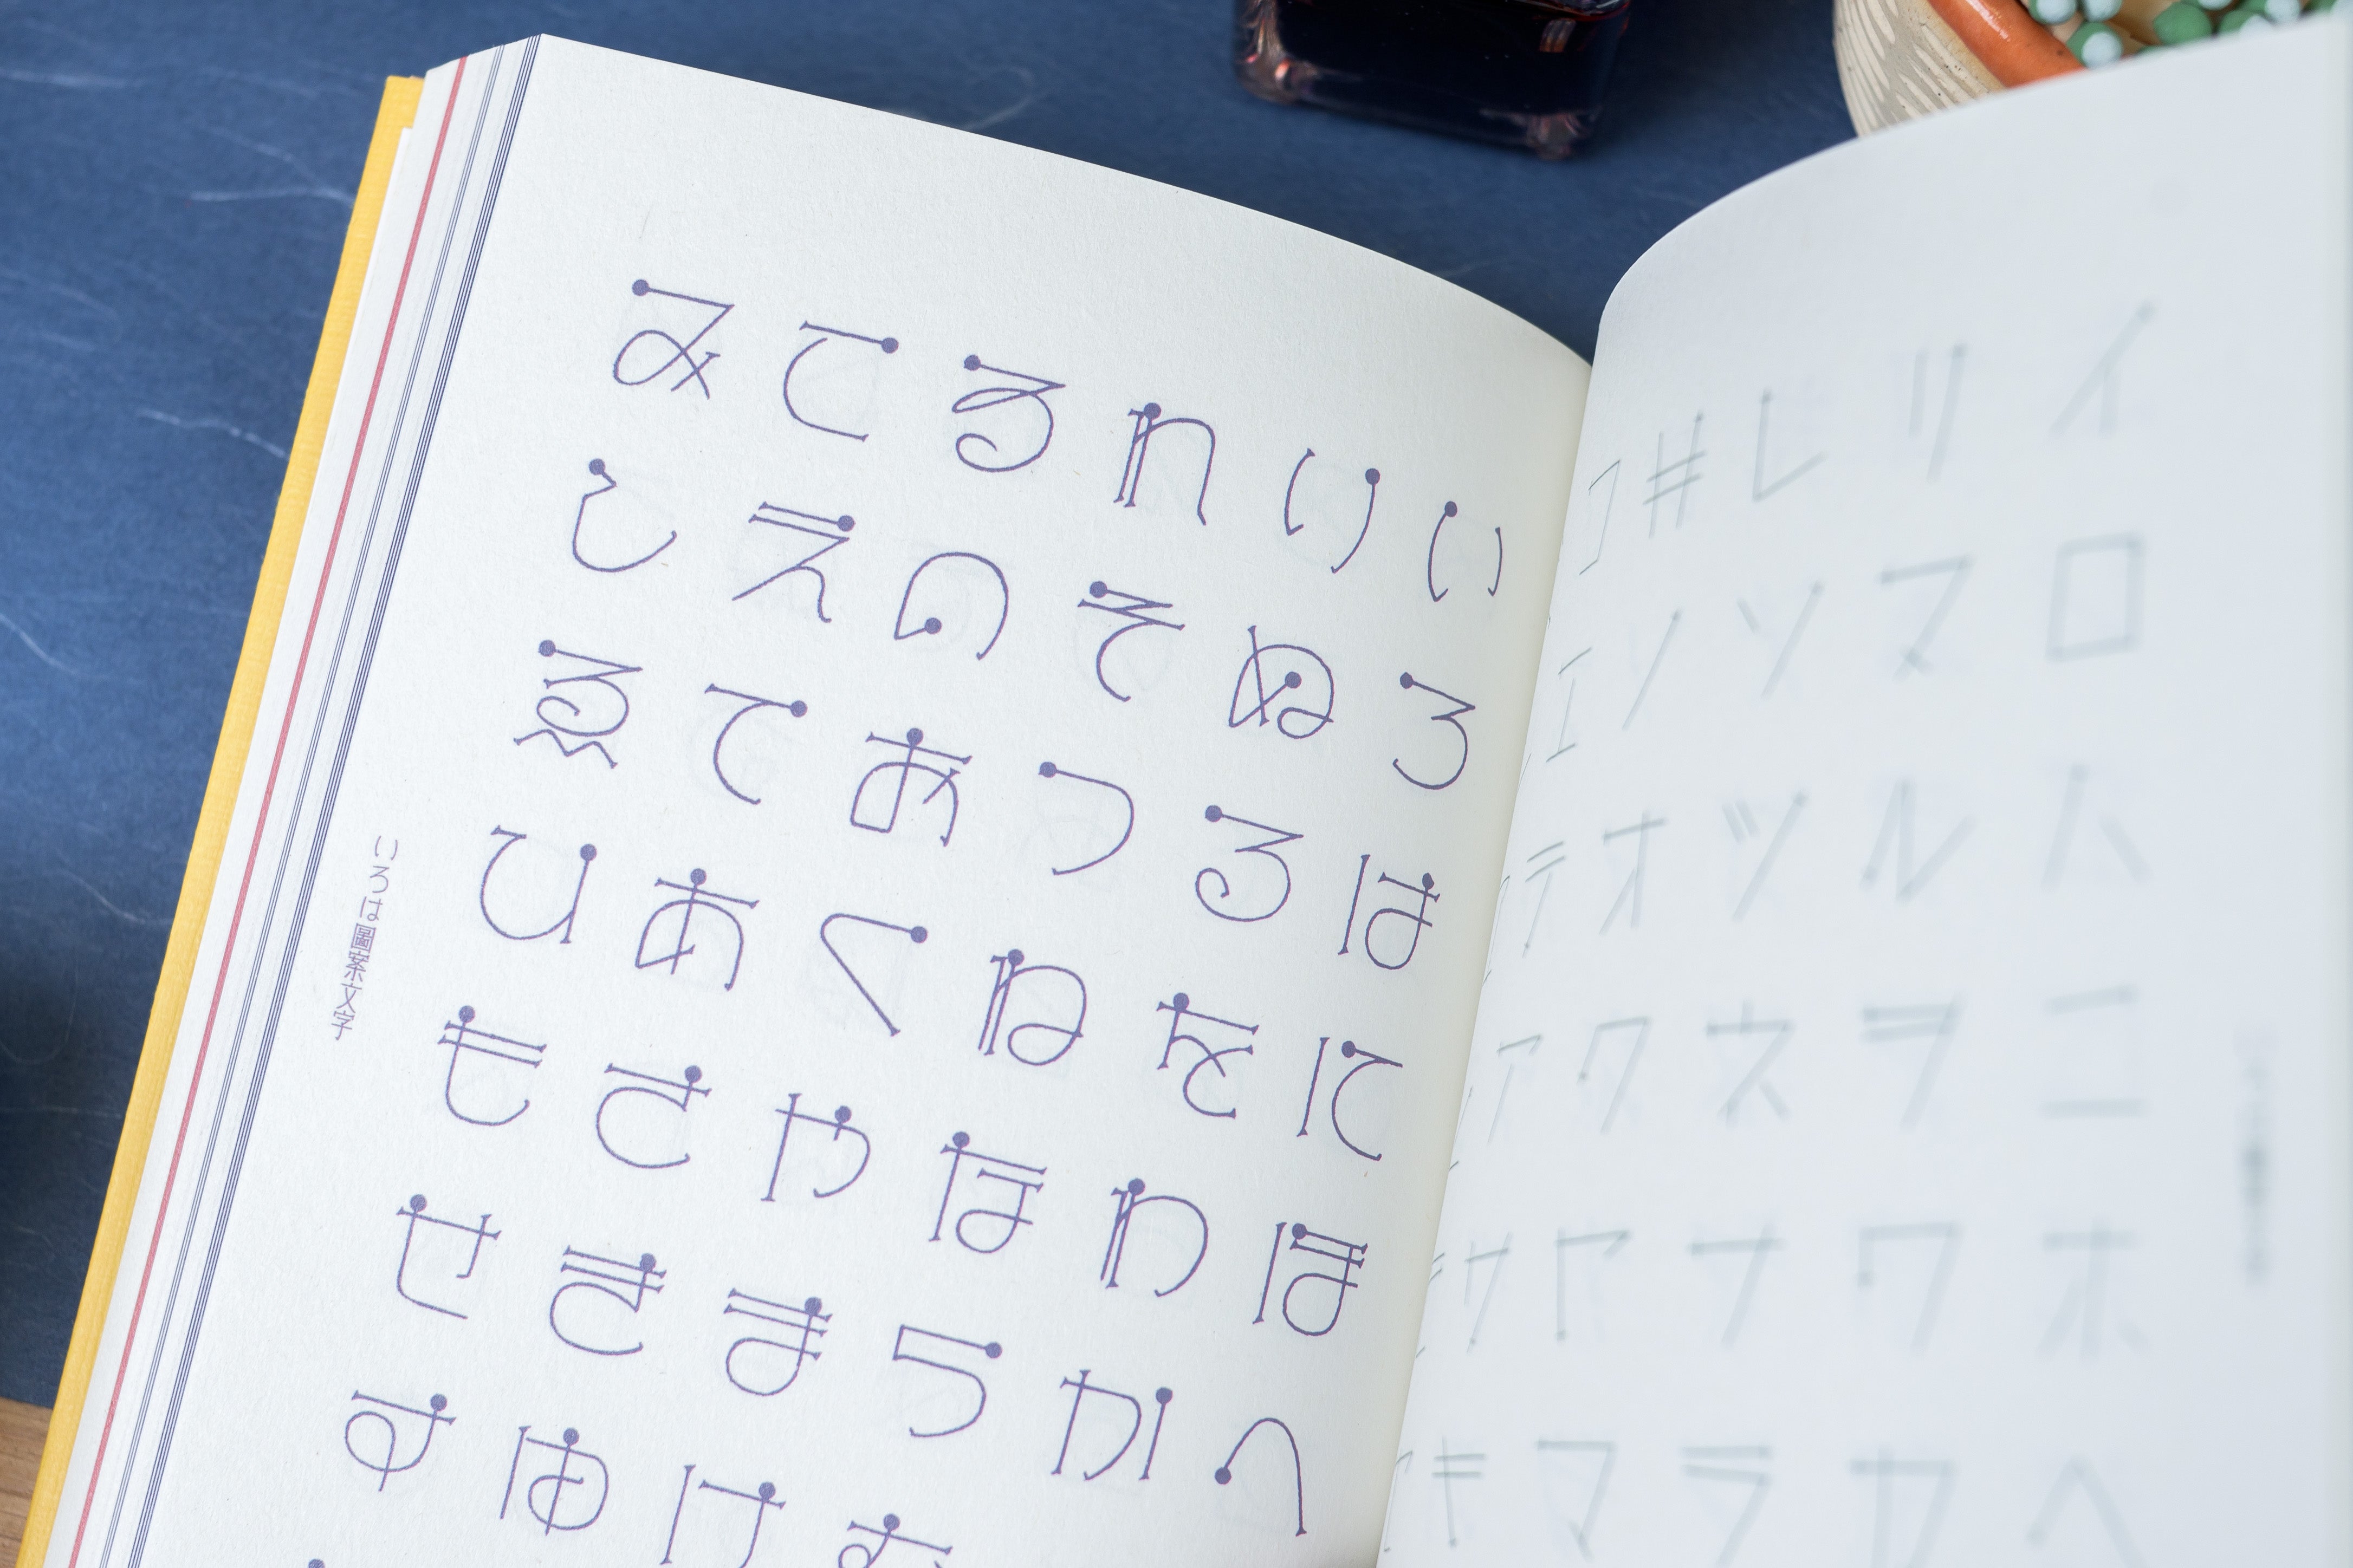 イロハニホヘ
リヌルヲワカ
レソツネナラ
ヰノオクヤマ
コエテアサキ
いろはにほへ
りぬるをわか
れそつねならむ
ゐのおくやまけ
こえてあさきゆ
みしゑひもせす
いろは圖案文字